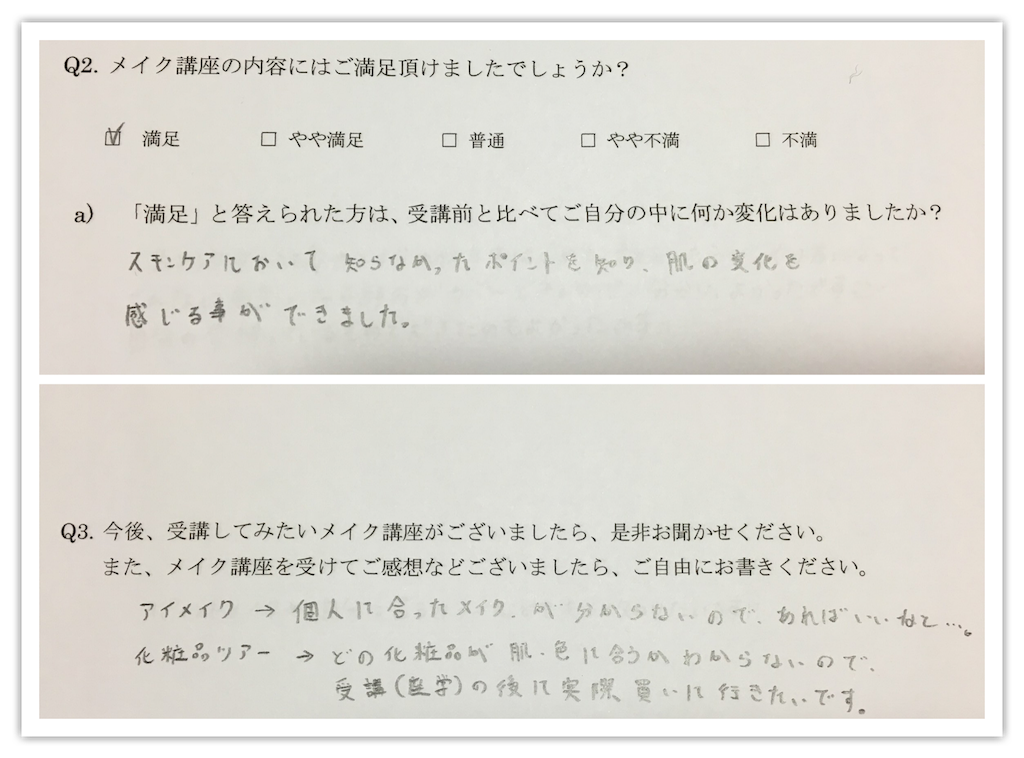 Q2. メイク講座の内容にはご満足頂けましたでしょうか？
☑ 満足 □ やや満足 □ 普通 □ やや不満 □ 不満
a) 「満足」と答えられた方は、受講前と比べてご自分の中に何か変化はありましたか？
スキンケアにおいて 知らなかったポイントを知り、肌の変化を
感じる事ができました。
Q3. 今後、受講してみたいメイク講座がございましたら、是非お聞かせください。
また、メイク講座を受けてご感想などございましたら、ご自由にお書きください。
アイメイク → 個人に合ったメイク.が分からないので、あればいいなと…。
化粧品ツアー → どの化粧品が肌・色に合うかわからないので、
受講(座学)の後に実際買いに行きたいです。